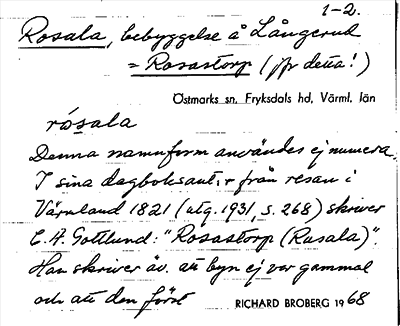 1-2.
Rosala, bebyggelse å Långerud
= Rosastorp (jfr detta!)
Östmarks sn, Fryksdals hd, Värml. län
rósala
Denna namnform användes ej numera.
I sina dagboksant. från resan i
Värmland 1821 (utg. 1931, s. 268) skriver
C. A. Gottlund: "Rosastorp (Rusala)".
Han skriver äv. att byn ej var gammal
och att den först
RICHARD BROBERG 1968